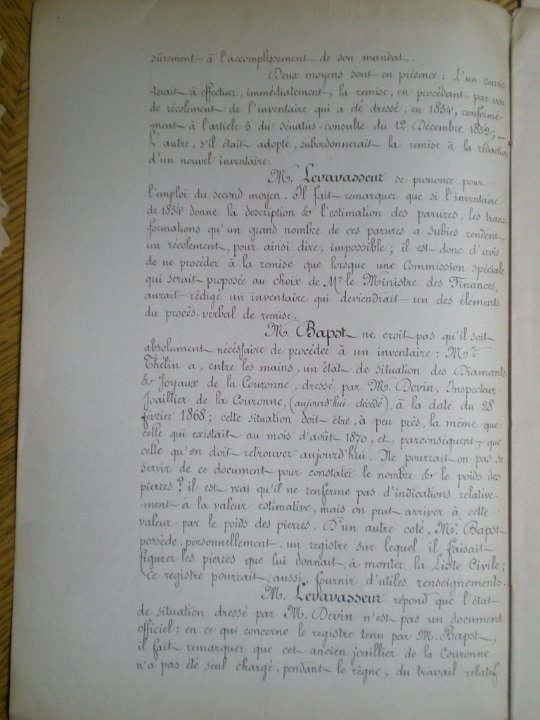 sûrement à l'accomplissement de son mandat.
Deux moyens sont en présence : L'un consis-
terait à effectuer, immédiatement, la remise, en procédant par voie
de récolement de l'inventaire qui a été dressé, en 1854, conformé-
ment à l'article 5 du sénatus-consulte du 12 Décembre 1852; —
L'autre, s'il était adopté, subordonnerait la remise à la rédaction
d'un nouvel inventaire.
M. Levavasseur se prononce pour
l'emploi du second moyen. Il fait remarquer que si l'inventaire
de 1854 donne la description & l'estimation des parures, les trans-
formations qu'un grand nombre de ces parures a subies rendent
un récolement, pour ainsi dire, impossible ; il est donc d'avis
de ne procéder à la remise que lorsque une Commission spéciale
qui serait proposée au choix de Mr. le Ministre des Finances,
aurait rédigé un inventaire qui deviendrait un des éléments
du procès-verbal de remise.
M. Bapst ne croit pas qu'il soit
absolument nécessaire de procéder à un inventaire : Mr.
Thélin a, entre les mains, un état de situation des Diamants
& Joyaux de la Couronne, dressé par M. Devin, Inspecteur
Joaillier de la Couronne, (aujourd'hui décédé), à la date du 28
février 1868; cette situation doit être, à peu près, la même que
celle qui existait au mois d'août 1870, et, parconséquent, que
celle qu'on doit retrouver aujourd'hui. Ne pourrait on pas se
servir de ce document pour constater le nombre & le poids des
pierres ? il est vrai qu'il ne renferme pas d'indications relative-
-ment à la valeur estimative, mais on peut arriver à cette
valeur par le poids des pierres. D'un autre coté, M. Bapst
possède, personnellement, un registre sur lequel il faisait
figurer les pierres que lui donnait, à monter, la Liste Civile;
ce registre pourrait, aussi, fournir d'utiles renseignements.
M. Levavasseur répond que l'état
de situation dressé par M. Devin n'est pas un document
officiel; en ce qui concerne le registre tenu par M. Bapst,
il fait remarquer que cet ancien joaillier de la Couronne
n'a pas été seul chargé, pendant le règne, du travail relatif